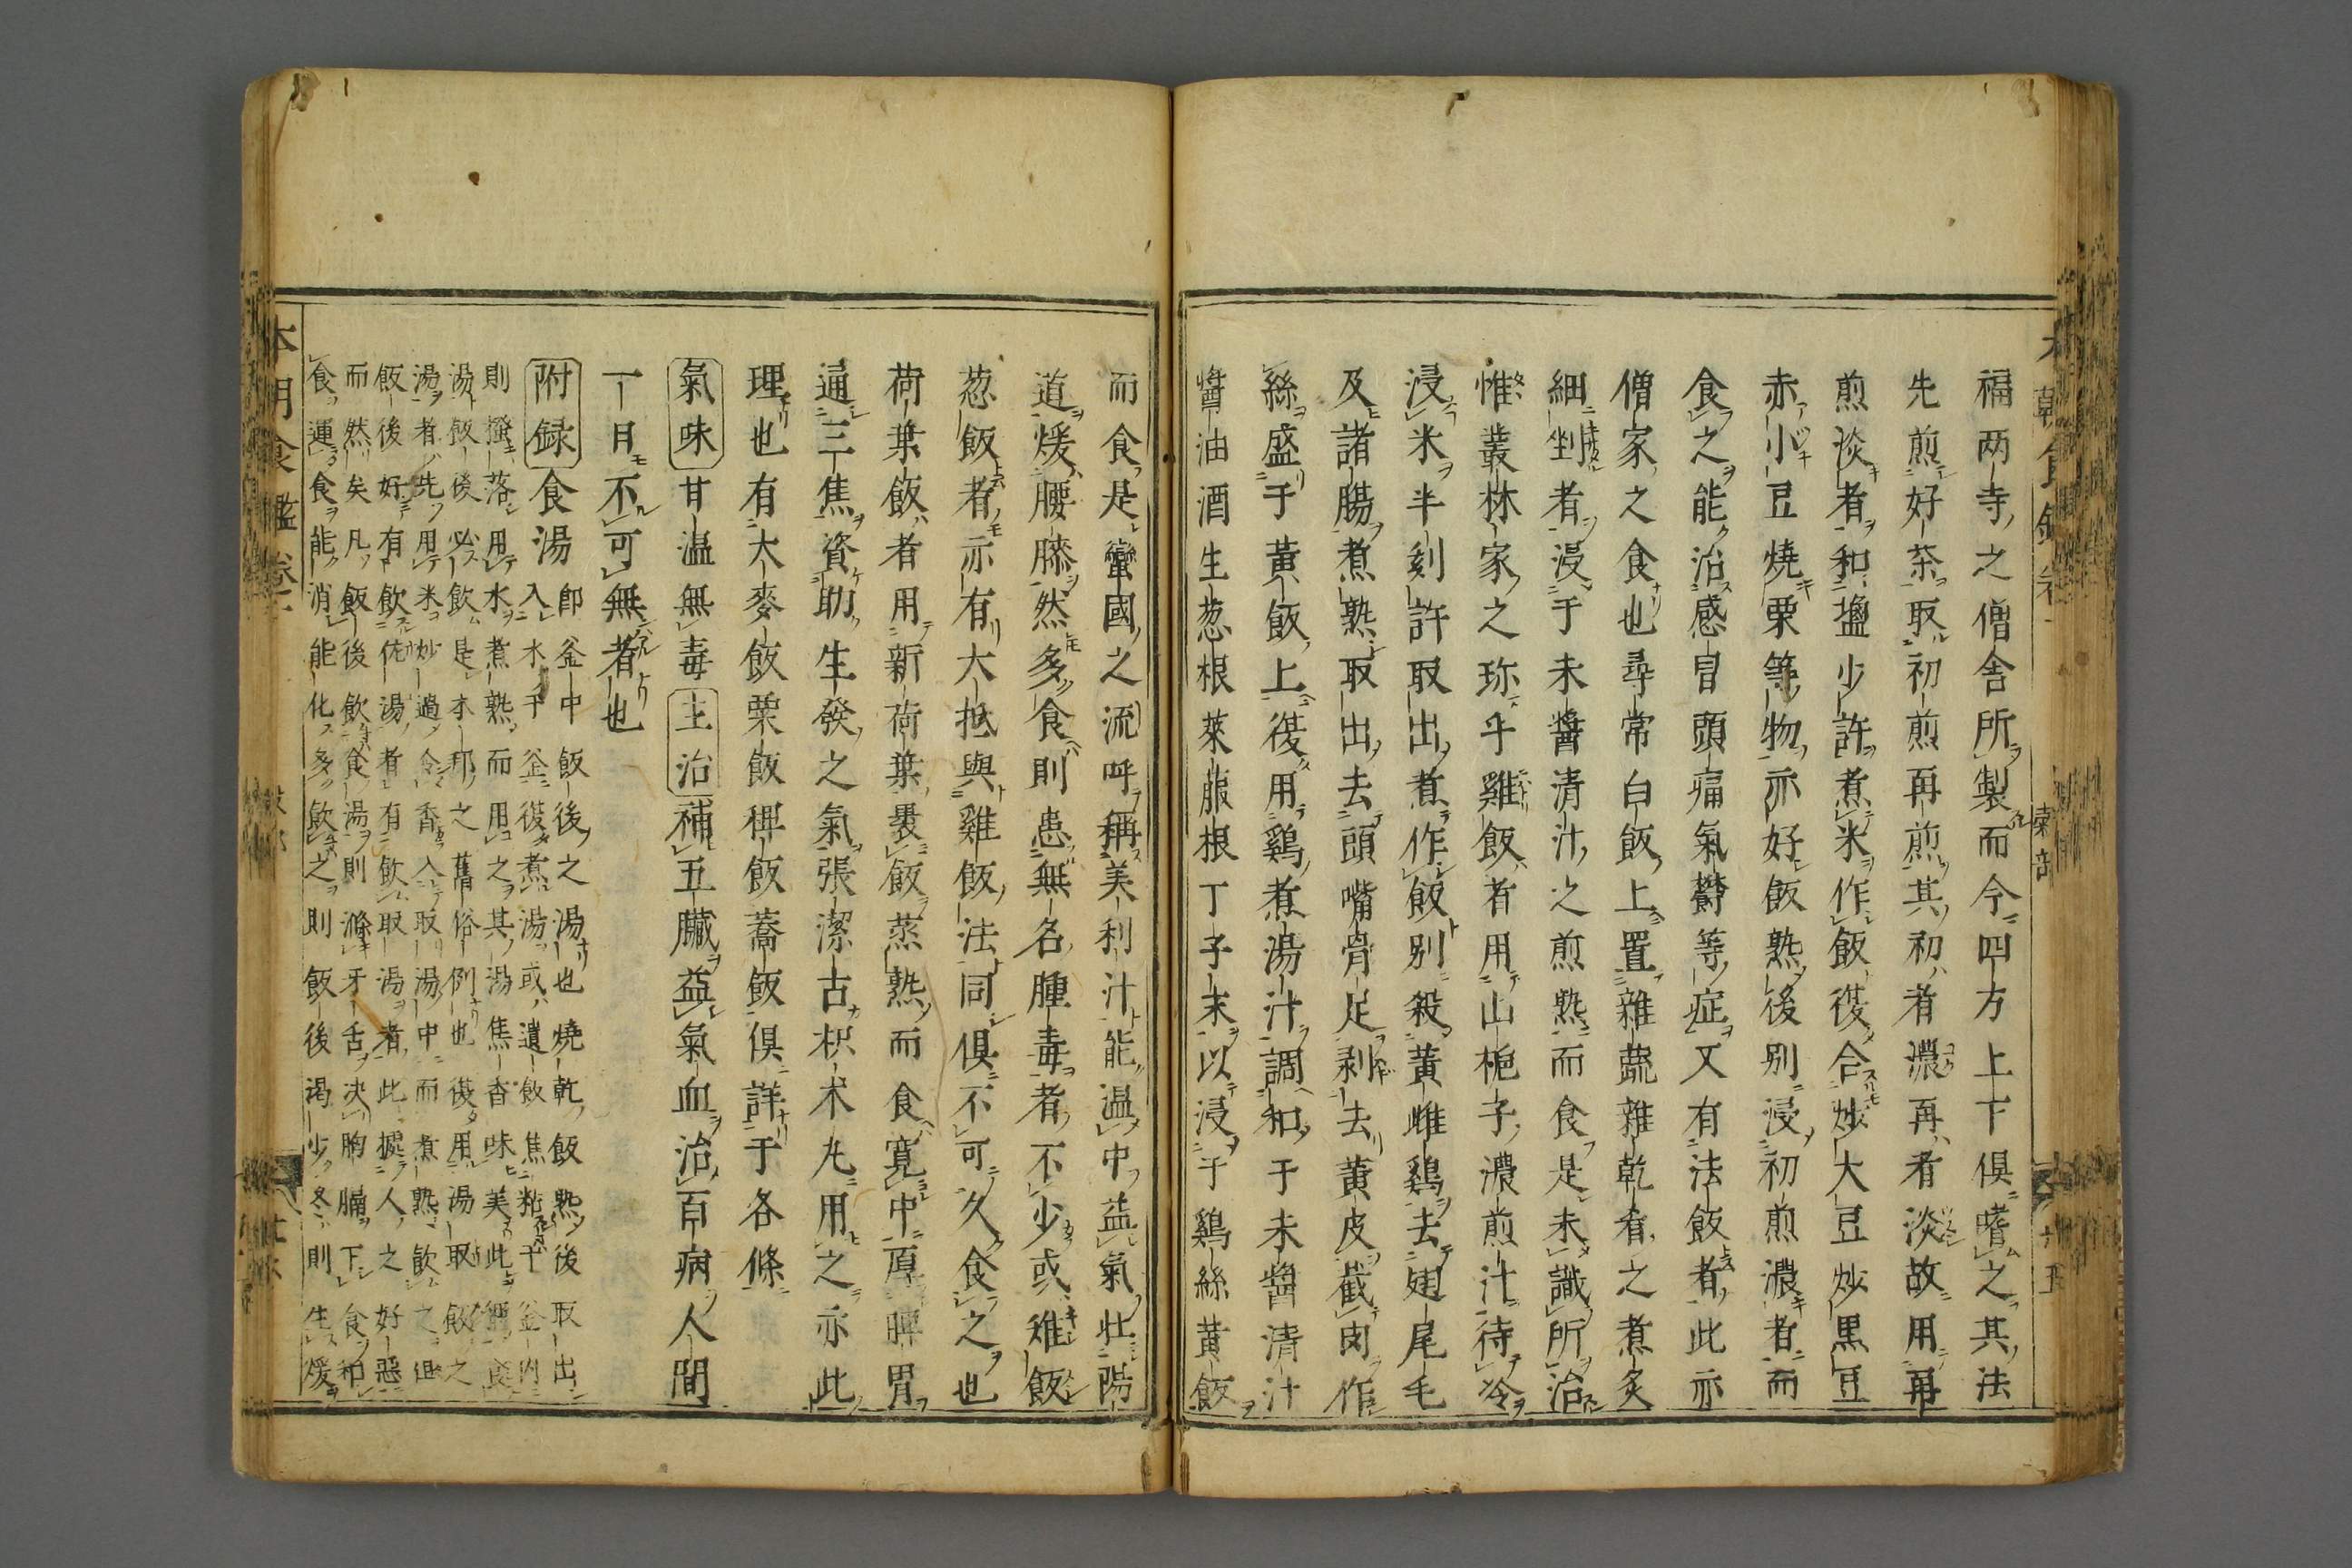 福両寺之僧舎所製而今四方上下俱嗜之其法
先煎好茶取初煎再煎其初者濃再者淡故用再
煎淡者和塩少許煮米作飯復合炒大豆炒黒豆
赤小豆焼栗等物亦好飯熟後別浸初煎濃者而
食之能治感冒頭痛氣欝等症又有法飯者此亦
僧家之食也尋常白飯上置雜蔬雜乾肴之煮炙
細剉者浸于未醬清汁之煎熟而食是未識所治
惟叢林家之珍乎雞飯者用山梔子濃煎汁待冷
浸米半刻許取出煮作飯別殺黃雌鷄去翅尾毛
及諸膓煮熟取出去頭嘴骨足剥去黃皮截肉作
絲盛于黃飯上復用鷄煮湯汁調和于未醬清汁
醬油酒生葱根萊服根丁子末以浸于鷄絲黃飯
而食是蠻國之流呼稱美利汁能温中益氣壮陽
道煖腰膝然多食則患無名腫毒者不少或雉飯
葱飯者亦有大抵與雞飯法同俱不可久食之也
荷葉飯者用新荷葉褁飯蒸熟而食寛中厚脾胃
通三焦資助生發之氣張潔古枳朮丸用之亦此
理也有大麥飯栗飯稗飯蕎飯俱詳于各條
氣味甘温無毒主治補五臟益氣血治百病人間
一日不可無者也
附録食湯
即釜中飯後之湯也燒乾飯熟後取出
入水于釜復煮湯或遺飯焦粘于釜内
則撥落用水煮熟而用之其湯焦香味美此
湯飯後必飲是本邦之舊俗例也復用湯取飯之
湯者先用米炒過令香入取湯中而煮熟飲之
飯後好有飲佐湯者有飲取湯者此據人之好惡
而然矣凡飯後飲食湯則滌牙舌决胸膈下食和
食運食能消能化多飲之則飯後渇少冬則生煖